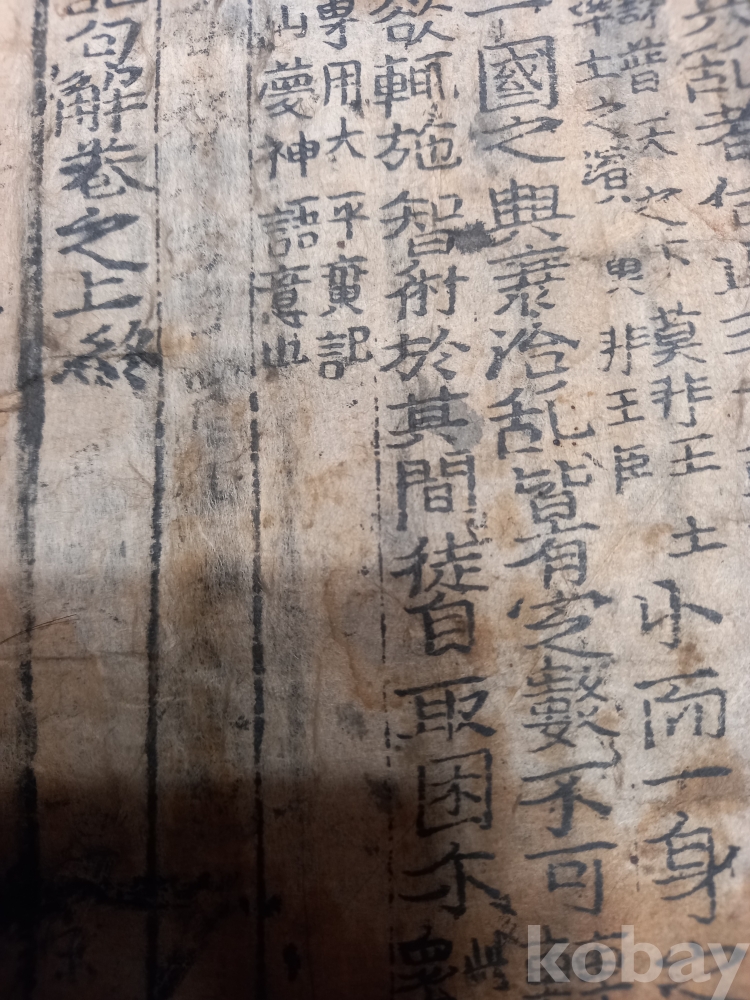 乱者
詩普天之下莫非王土
率土之濱
非王臣
小而一身
一國之興衰治乱皆有定數不可
欲輒施智術於其間徒自取困尓
此
用大平廣記
山夢神語意也
句解卷之上終
kobay